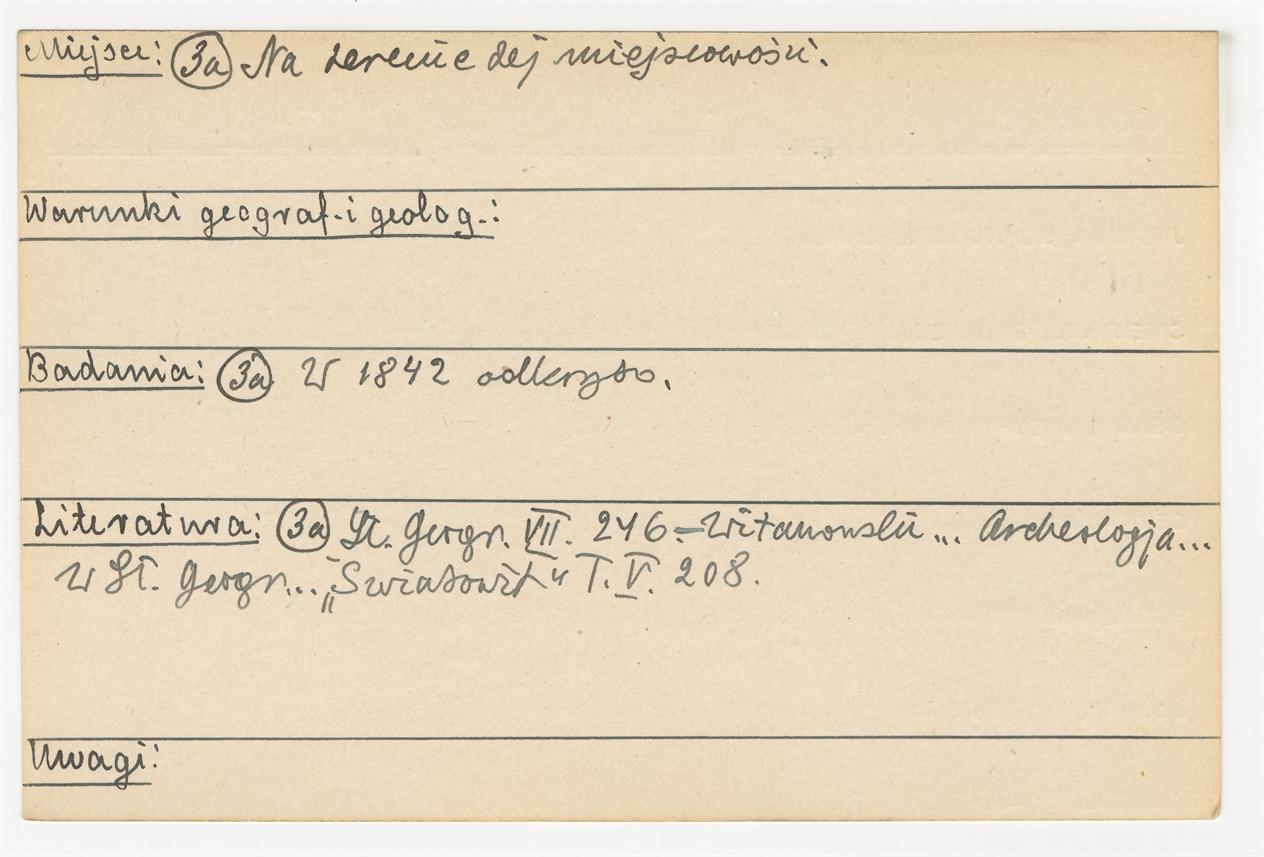 Miejsce: 3a Na terenie tej miejscowości.
Warunki geograf. i geolog.:
Badania: 3a W 1842 odkryto.
Literatura: 3a Sł. Geogr. VII. 246. – Witanowski ... Archeologja...
w Sł. Geogr... „Swiatowit" T. V. 208.
Uwagi: